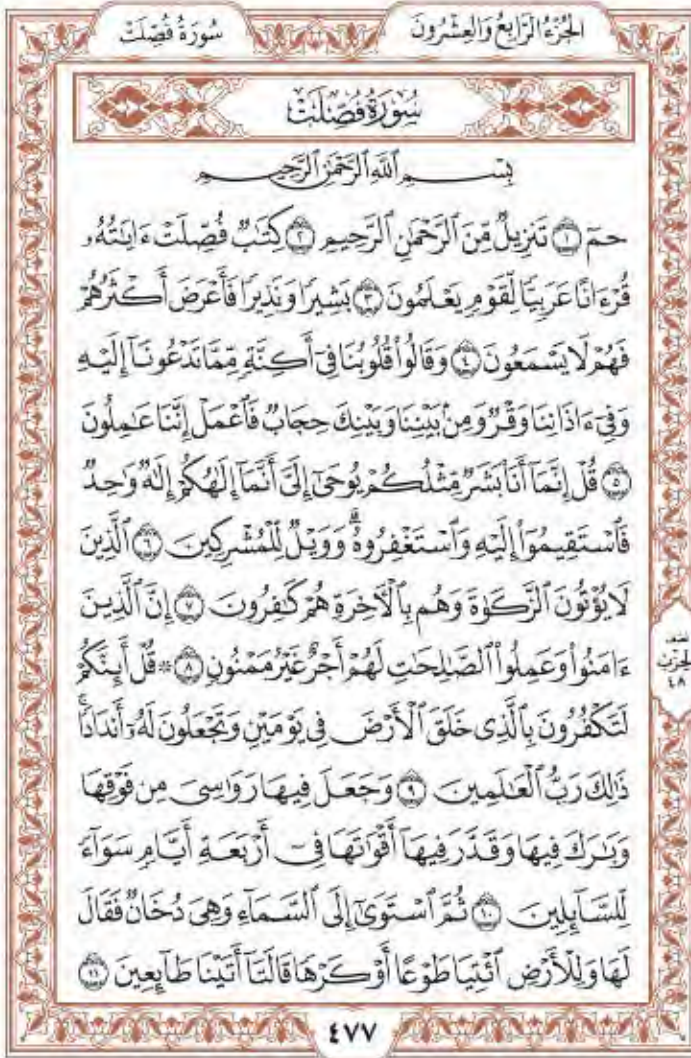 الجُزْءُ الرَّابِعُ وَالعِشْرُونَ
سُورَةُ فُصِّلَتْ
سُورَةُ فُصِّلَتْ
بِسْمِ ٱللَّهِ ٱلرَّحْمَٰنِ ٱلرَّحِيمِ
حمٓ ١ تَنزِيلٌ مِّنَ ٱلرَّحْمَٰنِ ٱلرَّحِيمِ ٢ كِتَٰبٌ فُصِّلَتْ ءَايَٰتُهُۥ
قُرْءَانًا عَرَبِيًّا لِّقَوْمٍ يَعْلَمُونَ ٣ بَشِيرًا وَنَذِيرًا فَأَعْرَضَ أَكْثَرُهُمْ
فَهُمْ لَا يَسْمَعُونَ ٤ وَقَالُوا۟ قُلُوبُنَا فِىٓ أَكِنَّةٍ مِّمَّا تَدْعُونَآ إِلَيْهِ
وَفِىٓ ءَاذَانِنَا وَقْرٌ وَمِنۢ بَيْنِنَا وَبَيْنِكَ حِجَابٌ فَٱعْمَلْ إِنَّنَا عَٰمِلُونَ
٥ قُلْ إِنَّمَآ أَنَا۠ بَشَرٌ مِّثْلُكُمْ يُوحَىٰٓ إِلَىَّ أَنَّمَآ إِلَٰهُكُمْ إِلَٰهٌ وَٰحِدٌ
فَٱسْتَقِيمُوٓا۟ إِلَيْهِ وَٱسْتَغْفِرُوهُ ۗ وَوَيْلٌ لِّلْمُشْرِكِينَ ٦ ٱلَّذِينَ
لَا يُؤْتُونَ ٱلزَّكَوٰةَ وَهُم بِٱلْءَاخِرَةِ هُمْ كَٰفِرُونَ ٧ إِنَّ ٱلَّذِينَ
ءَامَنُوا۟ وَعَمِلُوا۟ ٱلصَّٰلِحَٰتِ لَهُمْ أَجْرٌ غَيْرُ مَمْنُونٍ ٨ ۞ قُلْ أَئِنَّكُمْ
لَتَكْفُرُونَ بِٱلَّذِى خَلَقَ ٱلْأَرْضَ فِى يَوْمَيْنِ وَتَجْعَلُونَ لَهُۥٓ أَندَادًا ۚ
ذَٰلِكَ رَبُّ ٱلْعَٰلَمِينَ ٩ وَجَعَلَ فِيهَا رَوَٰسِىَ مِن فَوْقِهَا
وَبَٰرَكَ فِيهَا وَقَدَّرَ فِيهَآ أَقْوَٰتَهَا فِىٓ أَرْبَعَةِ أَيَّامٍ سَوَآءً
لِّلسَّآئِلِينَ ١٠ ثُمَّ ٱسْتَوَىٰٓ إِلَى ٱلسَّمَآءِ وَهِىَ دُخَانٌ فَقَالَ
لَهَا وَلِلْأَرْضِ ٱئْتِيَا طَوْعًا أَوْ كَرْهًا قَالَتَآ أَتَيْنَا طَآئِعِينَ ١١
نصف
الحزب
٤٨
٤٧٧